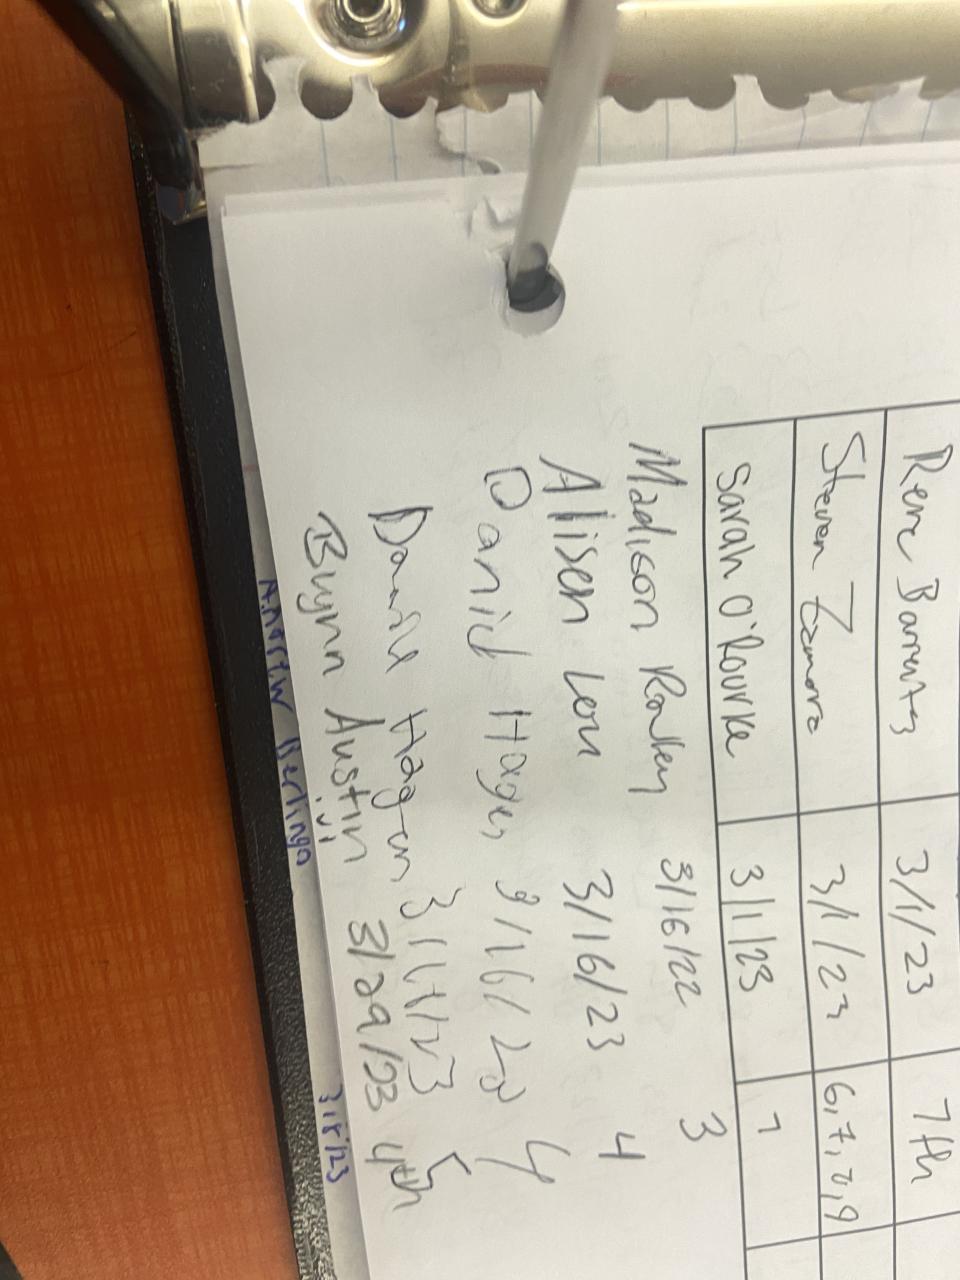 Rene Barrents 3/1/23 7th
Steven Zamora 3/1/23 6,7,8,9
Sarah O'Rourke 3/1/23 7
Madison 3/16/22 3
Alisen Lou 3/16/23 4
Daniel Hagen 3/16/20 4
Daniel Hagen 3/17/23 5
Brynn Austin 3/29/23 4th
Berlinga 3/8/23